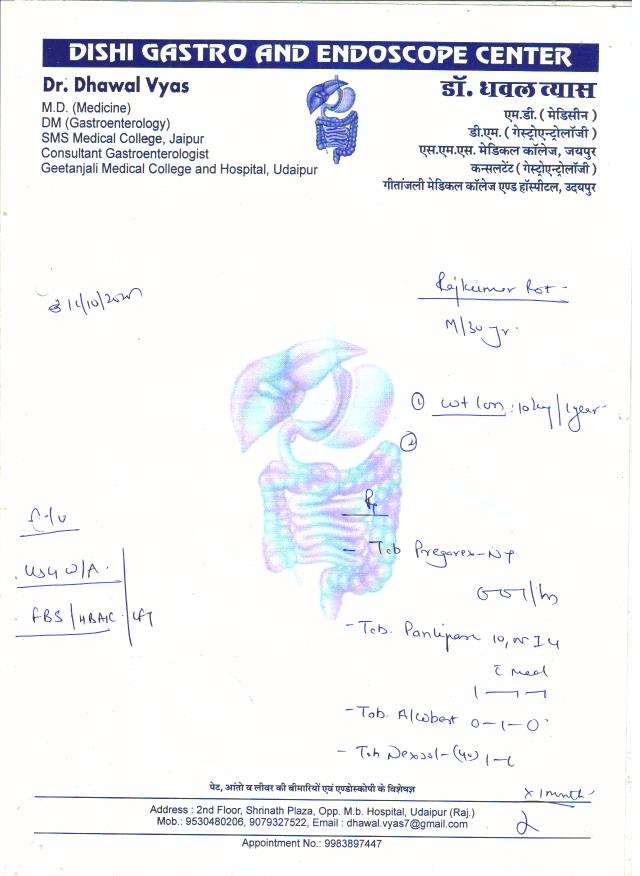 DISHI GASTRO AND ENDOSCOPE CENTER
Dr. Dhawal Vyas
M.D. (Medicine)
DM (Gastroenterology)
SMS Medical College, Jaipur
Consultant Gastroenterologist
Geetanjali Medical College and Hospital, Udaipur
डॉ. धवल व्यास
एम.डी. ( मेडिसीन )
डी.एम. ( गेस्ट्रोएन्ट्रोलॉजी )
एस.एम.एस. मेडिकल कॉलेज, जयपुर
कन्सलटेंट ( गेस्ट्रोएन्ट्रोलॉजी )
गीतांजली मेडिकल कॉलेज एण्ड हॉस्पीटल, उदयपुर
Rajkumar Rot
M/30 yr.
① wt loss : 10 kg / 1 year
②
USG W/A
FBS / HBA1C LFT
- Tab Pregarex-NT
- Tab. 10,000 IU
c meal
1-1-1
- Tab. 0-1-0
- Tab (40)
x 1 month
पेट, आंतो व लीवर की बीमारियों एवं एण्डोस्कोपी के विशेषज्ञ
Address : 2nd Floor, Shrinath Plaza, Opp. M.b. Hospital, Udaipur (Raj.)
Mob.: 9530480206, 9079327522, Email : dhawal.vyas7@gmail.com
Appointment No.: 9983897447